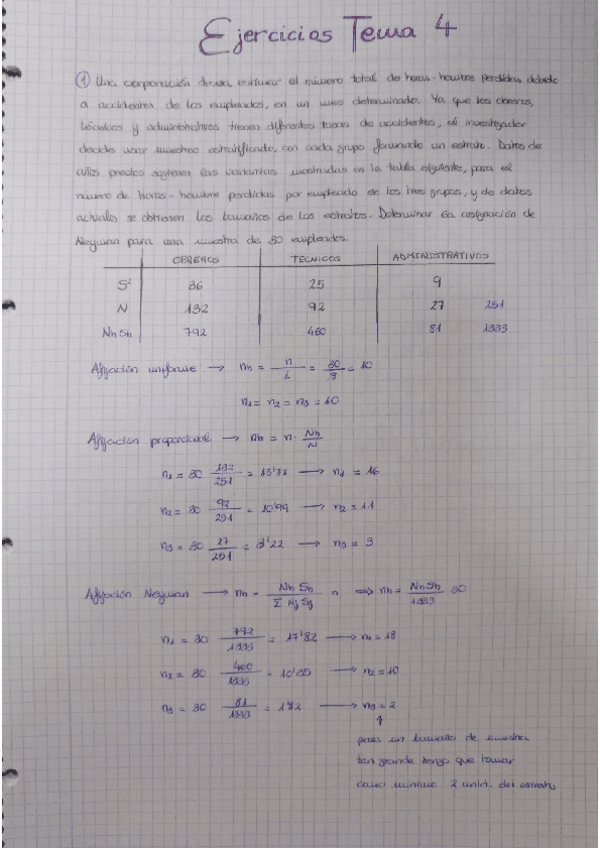 Ejercicios Tema 4
① Una corporación desea estimar el número total de horas-hombre perdidas debido
a accidentes de los empleados, en un mes determinado. Ya que los obreros,
técnicos y administrativos tienen diferentes tasas de accidentes, el investigador
decide usar muestreo estratificado, con cada grupo formando un estrato. Datos de
años previos sugieren las varianzas mostradas en la tabla siguiente, para el
número de horas-hombre perdidas por empleado en los tres grupos, y de datos
actuales se obtienen los tamaños de los estratos. Determinar la asignación de
Neyman para una muestra de 30 empleados.
OBREROS TECNICOS ADMINISTRATIVOS
S² 36 25 9
N 132 92 27 251
Nh Sh 792 460 81 1333
Afijación uniforme → nh = n/L = 30/3 = 10
n1 = n2 = n3 = 10
Afijación proporcional → nh = n · Nh/N
n1 = 30 132/251 = 15'77 → n1 = 16
n2 = 30 92/251 = 10'99 → n2 = 11
n3 = 30 27/251 = 3'22 → n3 = 3
Afijación Neyman → nh = Nh Sh/Σ Nj Sj n ⇒ nh = Nh Sh/1333 30
n1 = 30 792/1333 = 17'82 → n1 = 18
n2 = 30 460/1333 = 10'35 → n2 = 10
n3 = 30 81/1333 = 1'82 → n3 = 2
↑
para un tamaño de muestra
tan grande tengo que tomar
como mínimo 2 unid. del estrato